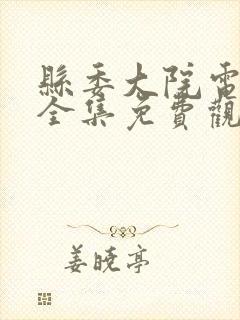 縣委大院電
全集免費觀
姜曉亭